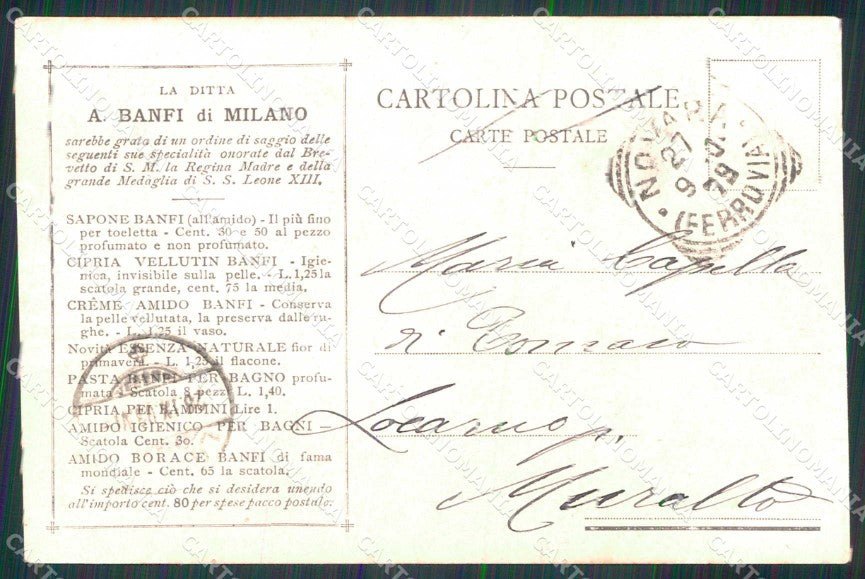 LA DITTA
A. BANFI di MILANO
sarebbe grata di un ordine di saggio delle
seguenti sue specialità onorate dal Bre-
vetto di S. M. la Regina Madre e della
grande Medaglia di S. S. Leone XIII.
SAPONE BANFI (all'amido) - Il più fino
per toeletta - Cent. 30 e 50 al pezzo
profumato e non profumato.
CIPRIA VELLUTIN BANFI - Igie-
nica, invisibile sulla pelle. - L. 1,25 la
scatola grande, cent. 75 la media.
CRÊME AMIDO BANFI - Conserva
la pelle vellutata, la preserva dalle ru-
ghe. - L. 1,25 il vaso.
Novità ESSENZA NATURALE fior di
primavera. - L. 1,25 il flacone.
PASTA BANFI PER BAGNO profu-
mata - Scatola 8 pezzi L. 1,40.
CIPRIA PEI BAMBINI Lire 1.
AMIDO IGIENICO PER BAGNI -
Scatola Cent. 30.
AMIDO BORACE BANFI di fama
mondiale - Cent. 65 la scatola.
Si spedisce ciò che si desidera unendo
all'importo cent. 80 per spese pacco postale.
CARTOLINA POSTALE
CARTE POSTALE
NOVARA
(FERROVIA)
Maria Capella
di
Locarno p.
Muralto